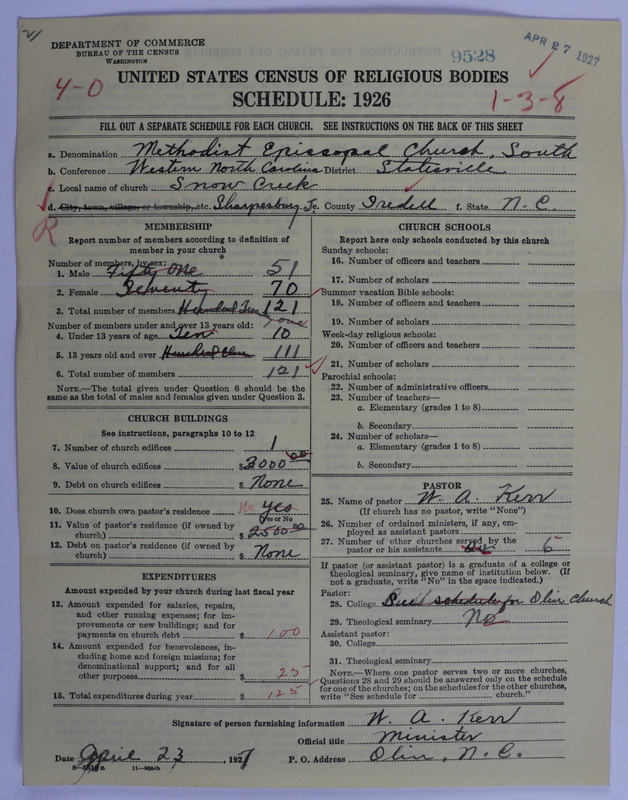 DEPARTMENT OF COMMERCE
BUREAU OF THE CENSUS
WASHINGTON
9528
APR 27 1927
4-0
1-3-8
UNITED STATES CENSUS OF RELIGIOUS BODIES
SCHEDULE: 1926
FILL OUT A SEPARATE SCHEDULE FOR EACH CHURCH. SEE INSTRUCTIONS ON THE BACK OF THIS SHEET
a. Denomination Methodist Episcopal Church, South
b. Conference Western North Carolina District Statesville
c. Local name of church Snow Creek
d. City, town, village, or township, etc. Sharpesburg County Iredell f. State N. C.
R
MEMBERSHIP
Report number of members according to definition of member in your church
Number of members, by sex:
1. Male Fifty One 51
2. Female Seventy 70
3. Total number of members 121
Number of members under and over 13 years old:
4. Under 13 years of age Ten 10
5. 13 years old and over 111
6. Total number of members 121
NOTE.—The total given under Question 6 should be the same as the total of males and females given under Question 3.
CHURCH BUILDINGS
See instructions, paragraphs 10 to 12
7. Number of church edifices 1
8. Value of church edifices $ 2000 00
9. Debt on church edifices $ None
10. Does church own pastor's residence No Yes
Yes or No
11. Value of pastor's residence (if owned by church) $ 2500 00
12. Debt on pastor's residence (if owned by church) $ None
EXPENDITURES
Amount expended by your church during last fiscal year
13. Amount expended for salaries, repairs, and other running expenses; for improvements or new buildings; and for payments on church debt $ 100
14. Amount expended for benevolences, including home and foreign missions; for denominational support; and for all other purposes $ 25
15. Total expenditures during year $ 125
CHURCH SCHOOLS
Report here only schools conducted by this church
Sunday schools:
16. Number of officers and teachers
17. Number of scholars
Summer vacation Bible schools:
18. Number of officers and teachers
19. Number of scholars
Week-day religious schools:
20. Number of officers and teachers
21. Number of scholars
Parochial schools:
22. Number of administrative officers
23. Number of teachers—
a. Elementary (grades 1 to 8)
b. Secondary
24. Number of scholars—
a. Elementary (grades 1 to 8)
b. Secondary
PASTOR
25. Name of pastor W. A. Kerr
(If church has no pastor, write "None")
26. Number of ordained ministers, if any, employed as assistant pastors
27. Number of other churches served by the pastor or his assistants six 6
If pastor (or assistant pastor) is a graduate of a college or theological seminary, give name of institution below. (If not a graduate, write "No" in the space indicated.)
Pastor:
28. College See schedule for Olin church
29. Theological seminary No
Assistant pastor:
30. College
31. Theological seminary
NOTE.—Where one pastor serves two or more churches, Questions 28 and 29 should be answered only on the schedule for one of the churches; on the schedules for the other churches, write "See schedule for church."
Signature of person furnishing information W. A. Kerr
Official title Minister
Date April 23, 1927 P. O. Address Olin, N. C.
11—9054b